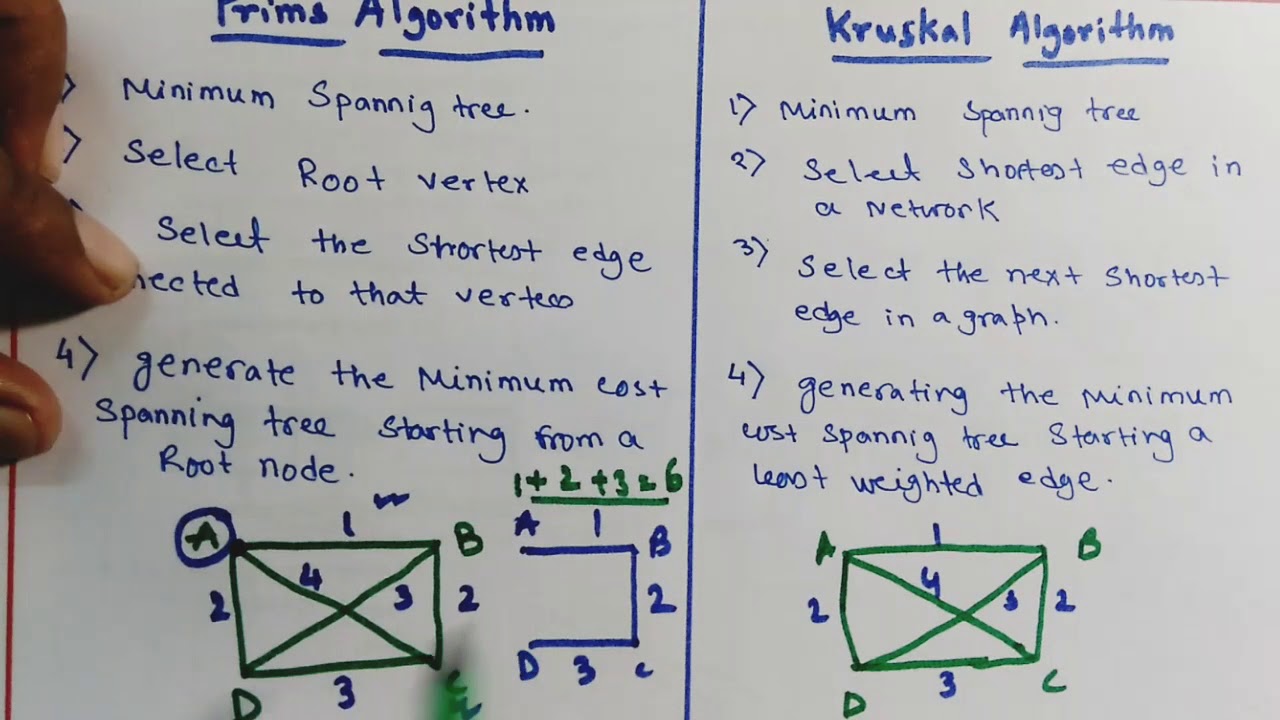 Prims Algorithm
> Minimum Spannig tree.
> Select Root vertex
Select the Shortest edge
nected to that vertex
4) generate the Minimum cost
Spanning tree Starting from a
Root node.
1+2+3=6
A 1 B
4 3
2 2
D 3 C
A 1 B
2
D 3 C
Kruskal Algorithm
1) Minimum Spannig tree
2) Select Shortest edge in
a Network
3) Select the next Shortest
edge in a graph.
4) generating the Minimum
cost Spannig tree Starting a
least weighted edge.
A 1 B
4 3
2 2
D 3 C